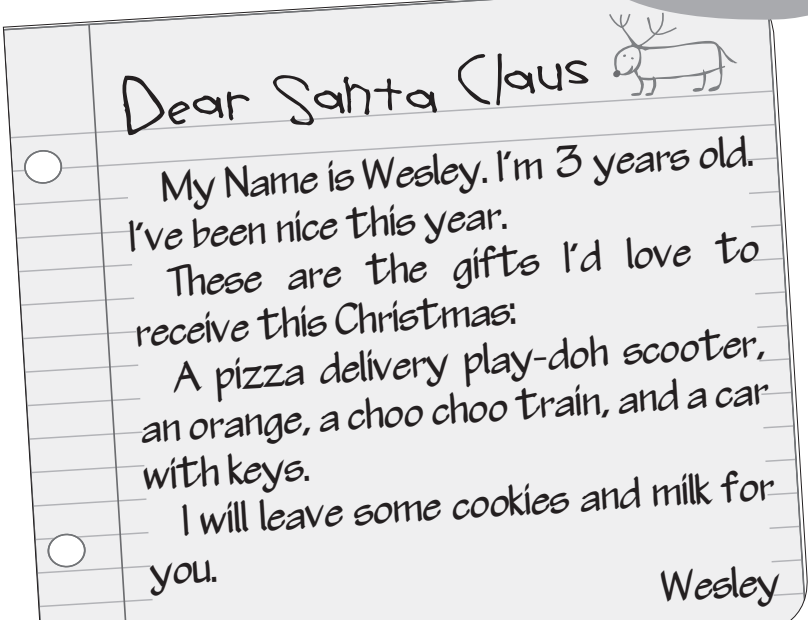 Dear Santa Claus
My Name is Wesley. I'm 3 years old.
I've been nice this year.
These are the gifts I'd love to
receive this Christmas:
A pizza delivery play-doh scooter,
an orange, a choo choo train, and a car
with keys.
I will leave some cookies and milk for
you.
Wesley